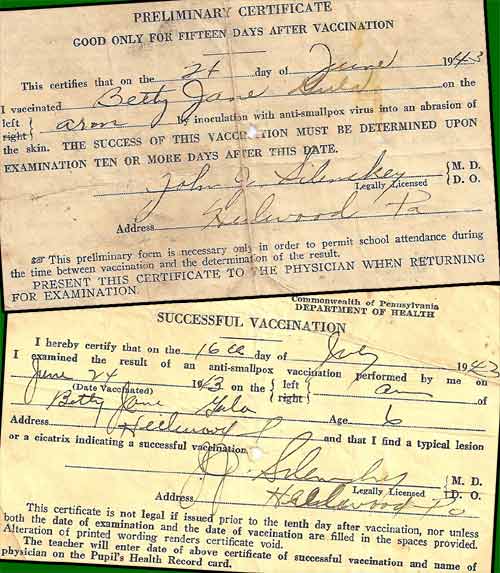 PRELIMINARY CERTIFICATE
GOOD ONLY FOR FIFTEEN DAYS AFTER VACCINATION
This certifies that on the 24 day of June 1943
I vaccinated Betty Jane on the
left } arm { by inoculation with anti-smallpox virus into an abrasion of
right
the skin. THE SUCCESS OF THIS VACCINATION MUST BE DETERMINED UPON
EXAMINATION TEN OR MORE DAYS AFTER THIS DATE.
John J Silenskey { M. D.
Legally Licensed { D. O.
Address Heilwood Pa
This preliminary form is necessary only in order to permit school attendance during
the time between vaccination and the determination of the result.
PRESENT THIS CERTIFICATE TO THE PHYSICIAN WHEN RETURNING
FOR EXAMINATION.
Commonwealth of Pennsylvania
DEPARTMENT OF HEALTH
SUCCESSFUL VACCINATION
I hereby certify that on the 16th day of July 1943
I examined the result of an anti-smallpox vaccination performed by me on
June 24 1943 on the { left } arm of
(Date Vaccinated) { right }
Betty Jane Age 6
Address Heilwood and that I find a typical lesion
or a cicatrix indicating a successful vaccination.
J. J. Silenskey { M. D.
Legally Licensed { D. O.
Address Heilwood Pa
This certificate is not legal if issued prior to the tenth day after vaccination, nor unless
both the date of examination and the date of vaccination are filled in the spaces provided.
Alteration of printed wording renders certificate void.
The teacher will enter date of above certificate of successful vaccination and name of
physician on the Pupil's Health Record card.